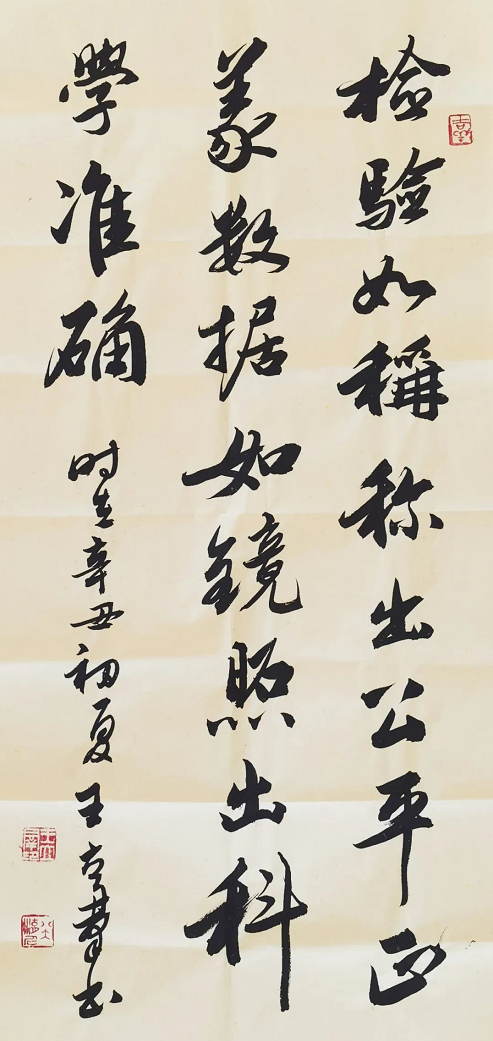 检验如稱称出公平正
義数据如鏡照出科
學准确
时在辛丑初夏王书